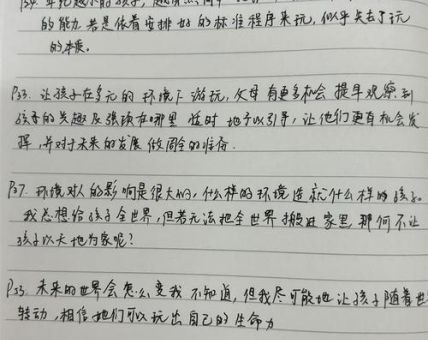 的能力若是依着安排好的标准程序来玩,似乎失去了玩
的本质。
P33. 让孩子在多元的环境下游玩,父母有更多机会提早观察到
孩子的兴趣及强项在哪里 适时地予以引导,让他们更有机会发
挥,并对于未来的发展做周全的准备.
P37 环境对人的影响是很大的,什么样的环境造就什么样的孩子.
我总想给孩子全世界,但若无法把全世界搬进家里 那何不让
孩子以天地为家呢?
P53. 未来的世界会怎么变我不知道,但我尽可能地让孩子随着世
转动,相信他们可以玩出自己的生命力